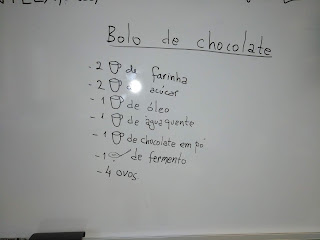 Bolo de chocolate
- 2 de farinha
- 2 de açúcar
- 1 de óleo
- 1 de agua quente
- 1 de chocolate em pó
- 1 de fermento
- 4 ovos